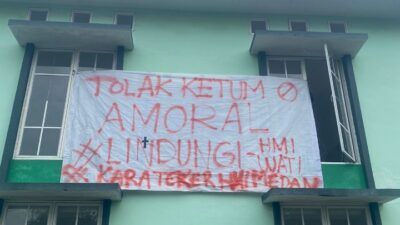 TOLAK KETUM
AMORAL
#LINDUNGI-HMI
WATI
#KARATEKER HMI MEDAN